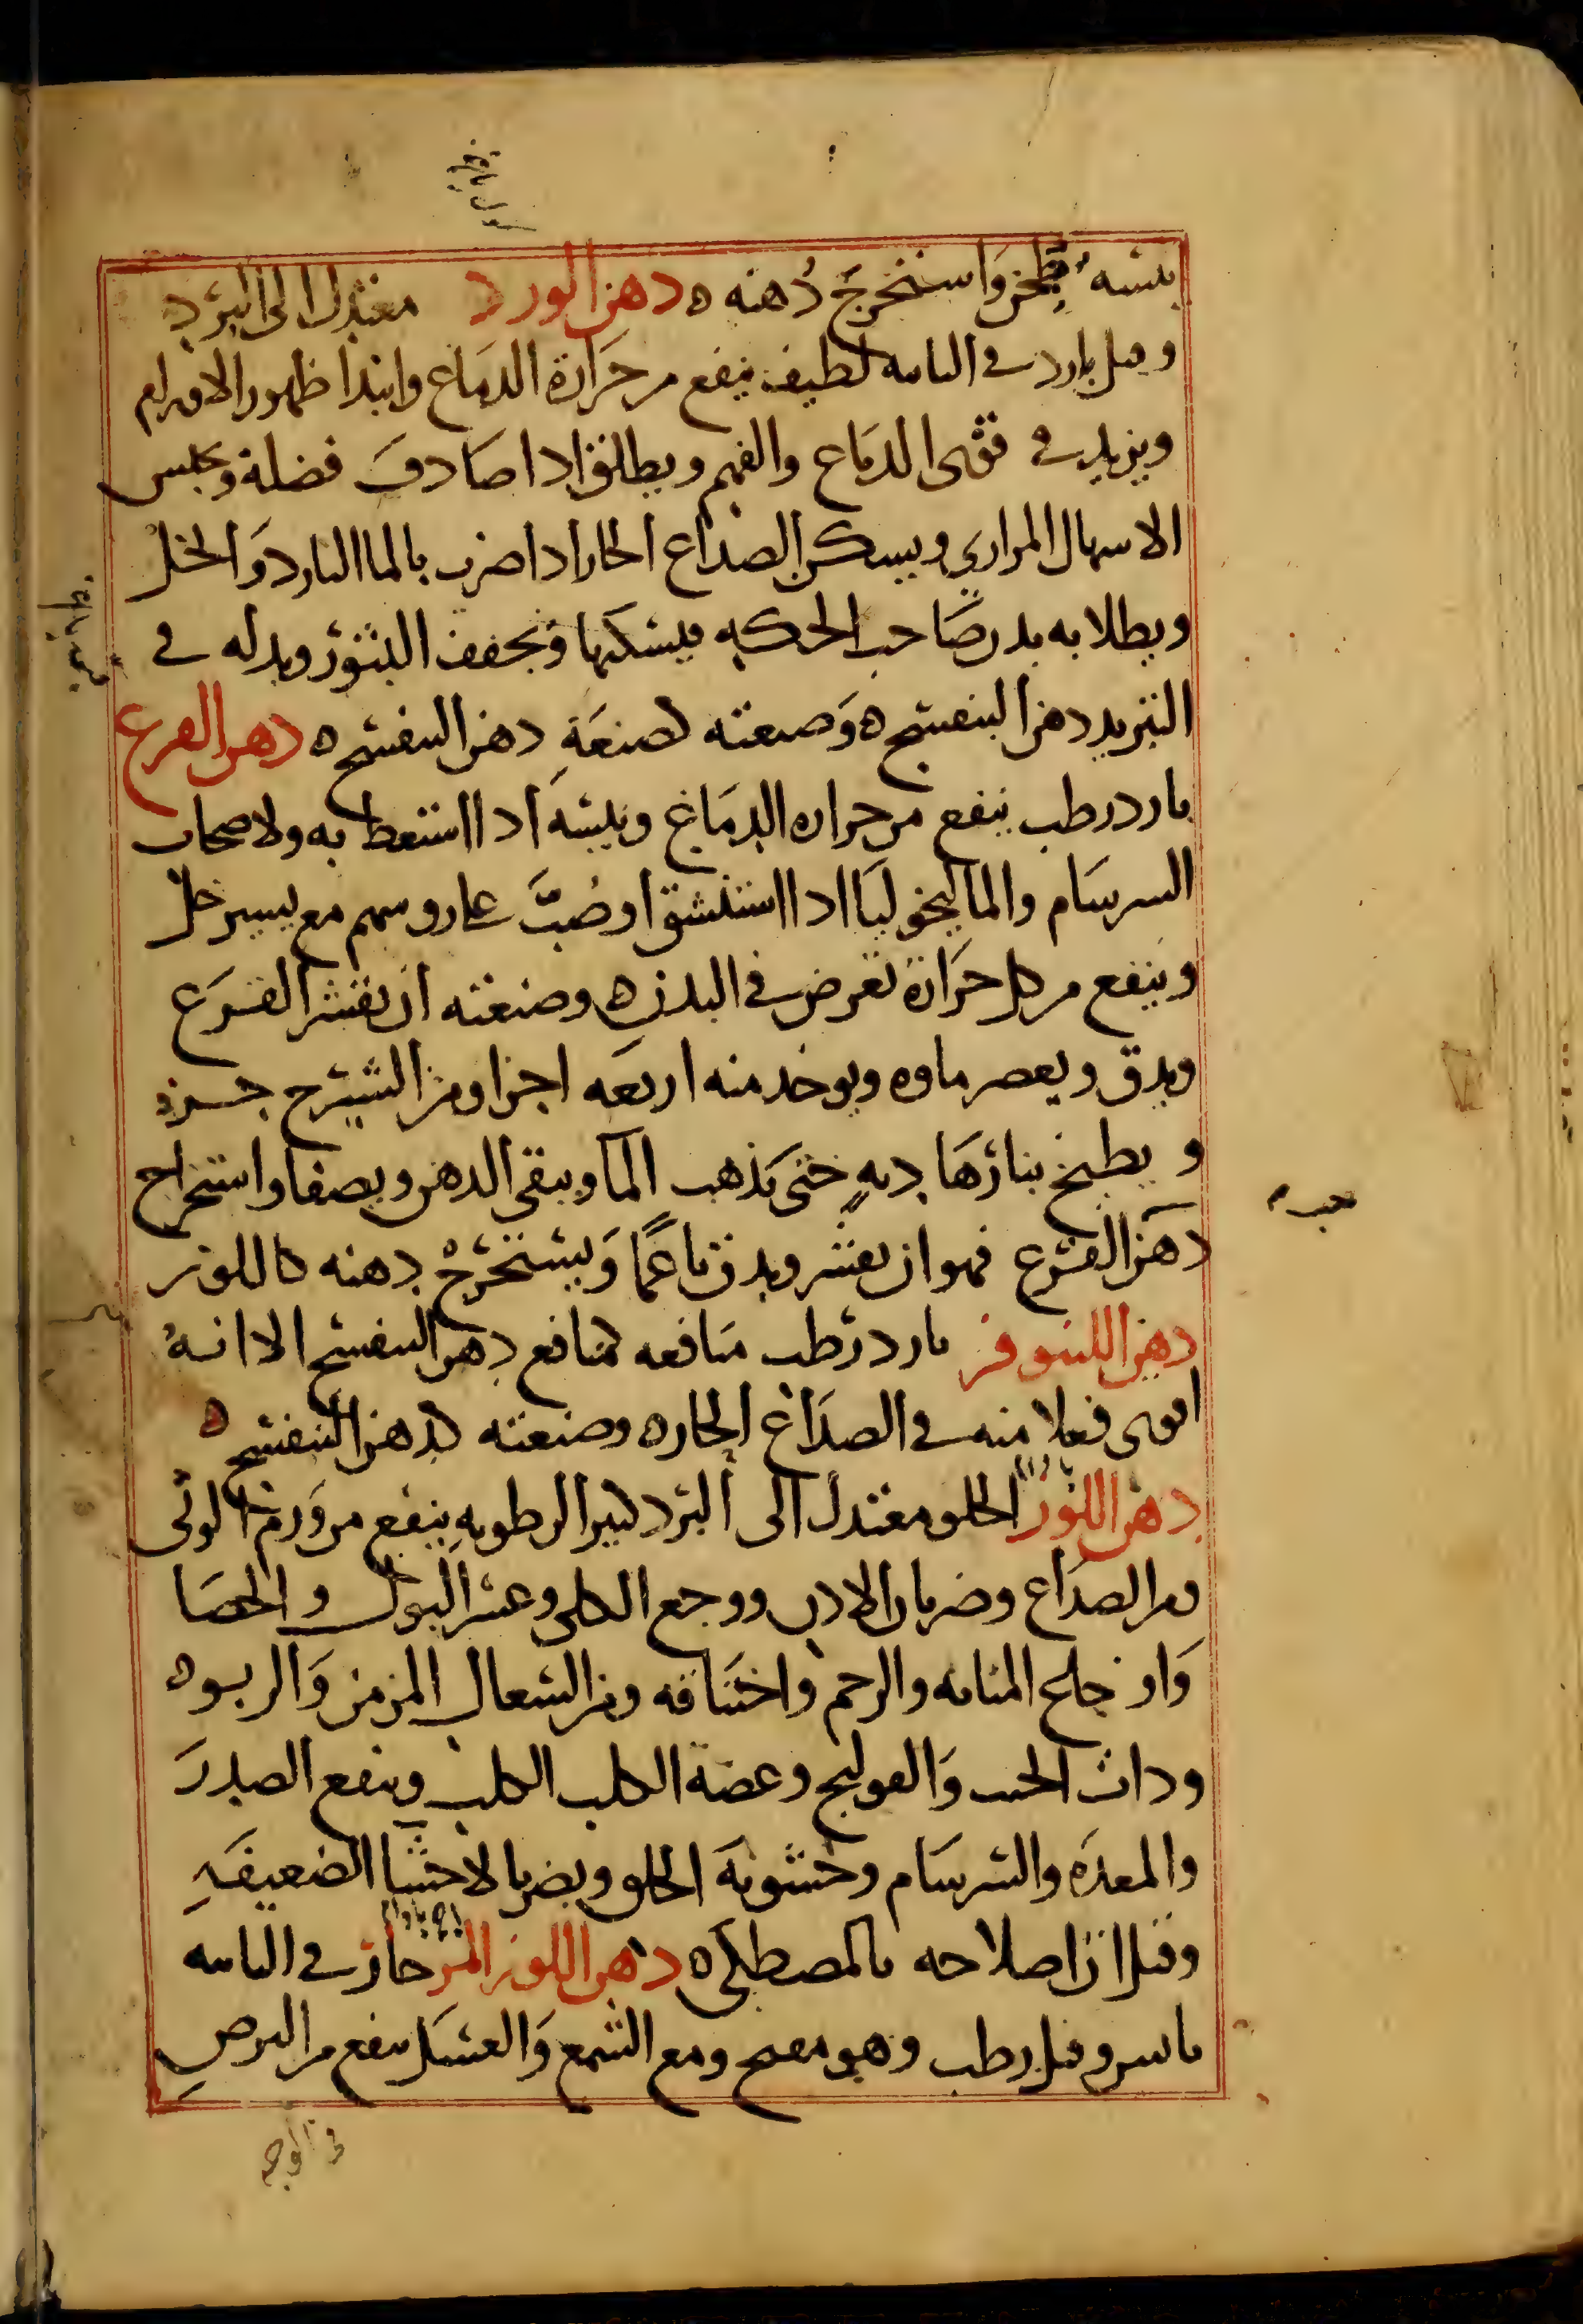 يبسه طحن واستخرج دهنه ه دهن الورد معتدل الى البرد
وقيل بارد في الثانية لطيف ينفع من حرارة الدماغ وابتدا ظهور الاورام
ويزيد في قوى الدماغ والفهم ويطلق اذا صادف فضلة ويحبس
الاسهال المراري ويسكن الصداع الحار اذا ضرب بالما البارد والخل
ويطلا به بدن صاحب الحكه فيسكنها ويجفف البثور وبدله في
التبريد دهن البنفسج ه وصنعته كصنعة دهن البنفسج ه دهن القرع
بارد رطب ينفع من حراره الدماغ ويبسه اذا استعط به ولاصحاب
السرسام والماليخوليا اذا استنشق او صب على روسهم مع يسير خل
وينفع من كل حرارة تعرض في البدن ه وصنعته ان يقشر القرع
ويدق ويعصر ماوه ويوخذ منه اربعه اجزا ومن الشيرج جزء
ويطبخ بنار هادية حتى يذهب الما ويبقى الدهن ويصفا واستخراج
دهن القرع فهو ان يقشر ويدق ناعما ويستخرج دهنه كاللوز
دهن اللينوفر بارد رطب منافعه كمنافع دهن البنفسج الا انه
اقوى فعلا منه في الصداع الحار ه وصنعته كدهن البنفسج ه
دهن اللوز الحلو معتدل الى البرد كثير الرطوبه ينفع من ورم الوثي
ومن الصداع وضربان الاذن ووجع الكلى وعسر البول والحصا
واوجاع المثانه والرحم واختناقه ومن السعال المزمن والربو ه
وذات الجنب والقولنج وعضة الكلب الكلب وينفع الصدر
والمعده والسرسام وخشونة الحلق ويضر بالاحشا الضعيفه
وقيل ان اصلاحه بالمصطكى ه دهن اللوز المر حار في الثانيه
يابس وقيل رطب وهو مفتح ومع الشمع والعسل ينفع من البرص
في الوجه